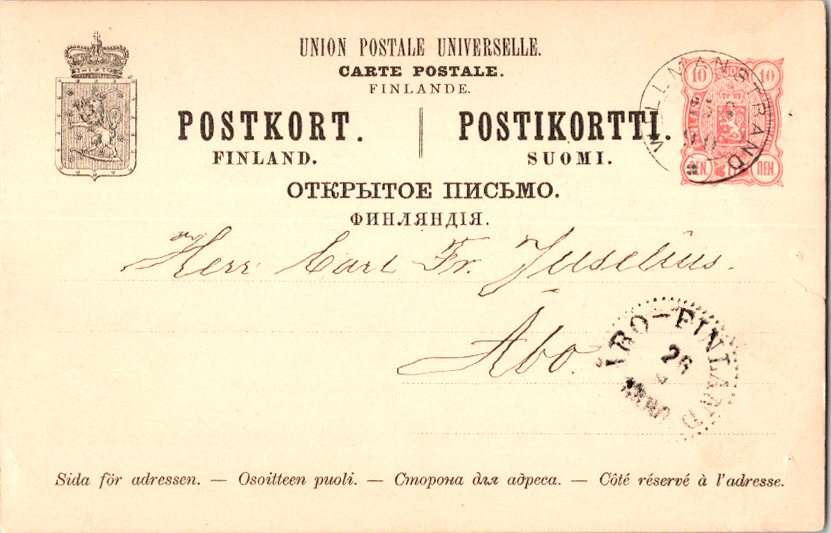 UNION POSTALE UNIVERSELLE.
CARTE POSTALE.
FINLANDE.
POSTKORT. POSTIKORTTI.
FINLAND. SUOMI.
ОТКРЫТОЕ ПИСЬМО.
ФИНЛЯНДІЯ.
10 10
PEN. ПЕН
WILLMANSTRAND
Herr Carl Fr. Juselius.
Åbo.
ÅBO-FINLAND
26
Sida för adressen. — Osoitteen puoli. — Сторона для адреса. — Côté réservé à l'adresse.